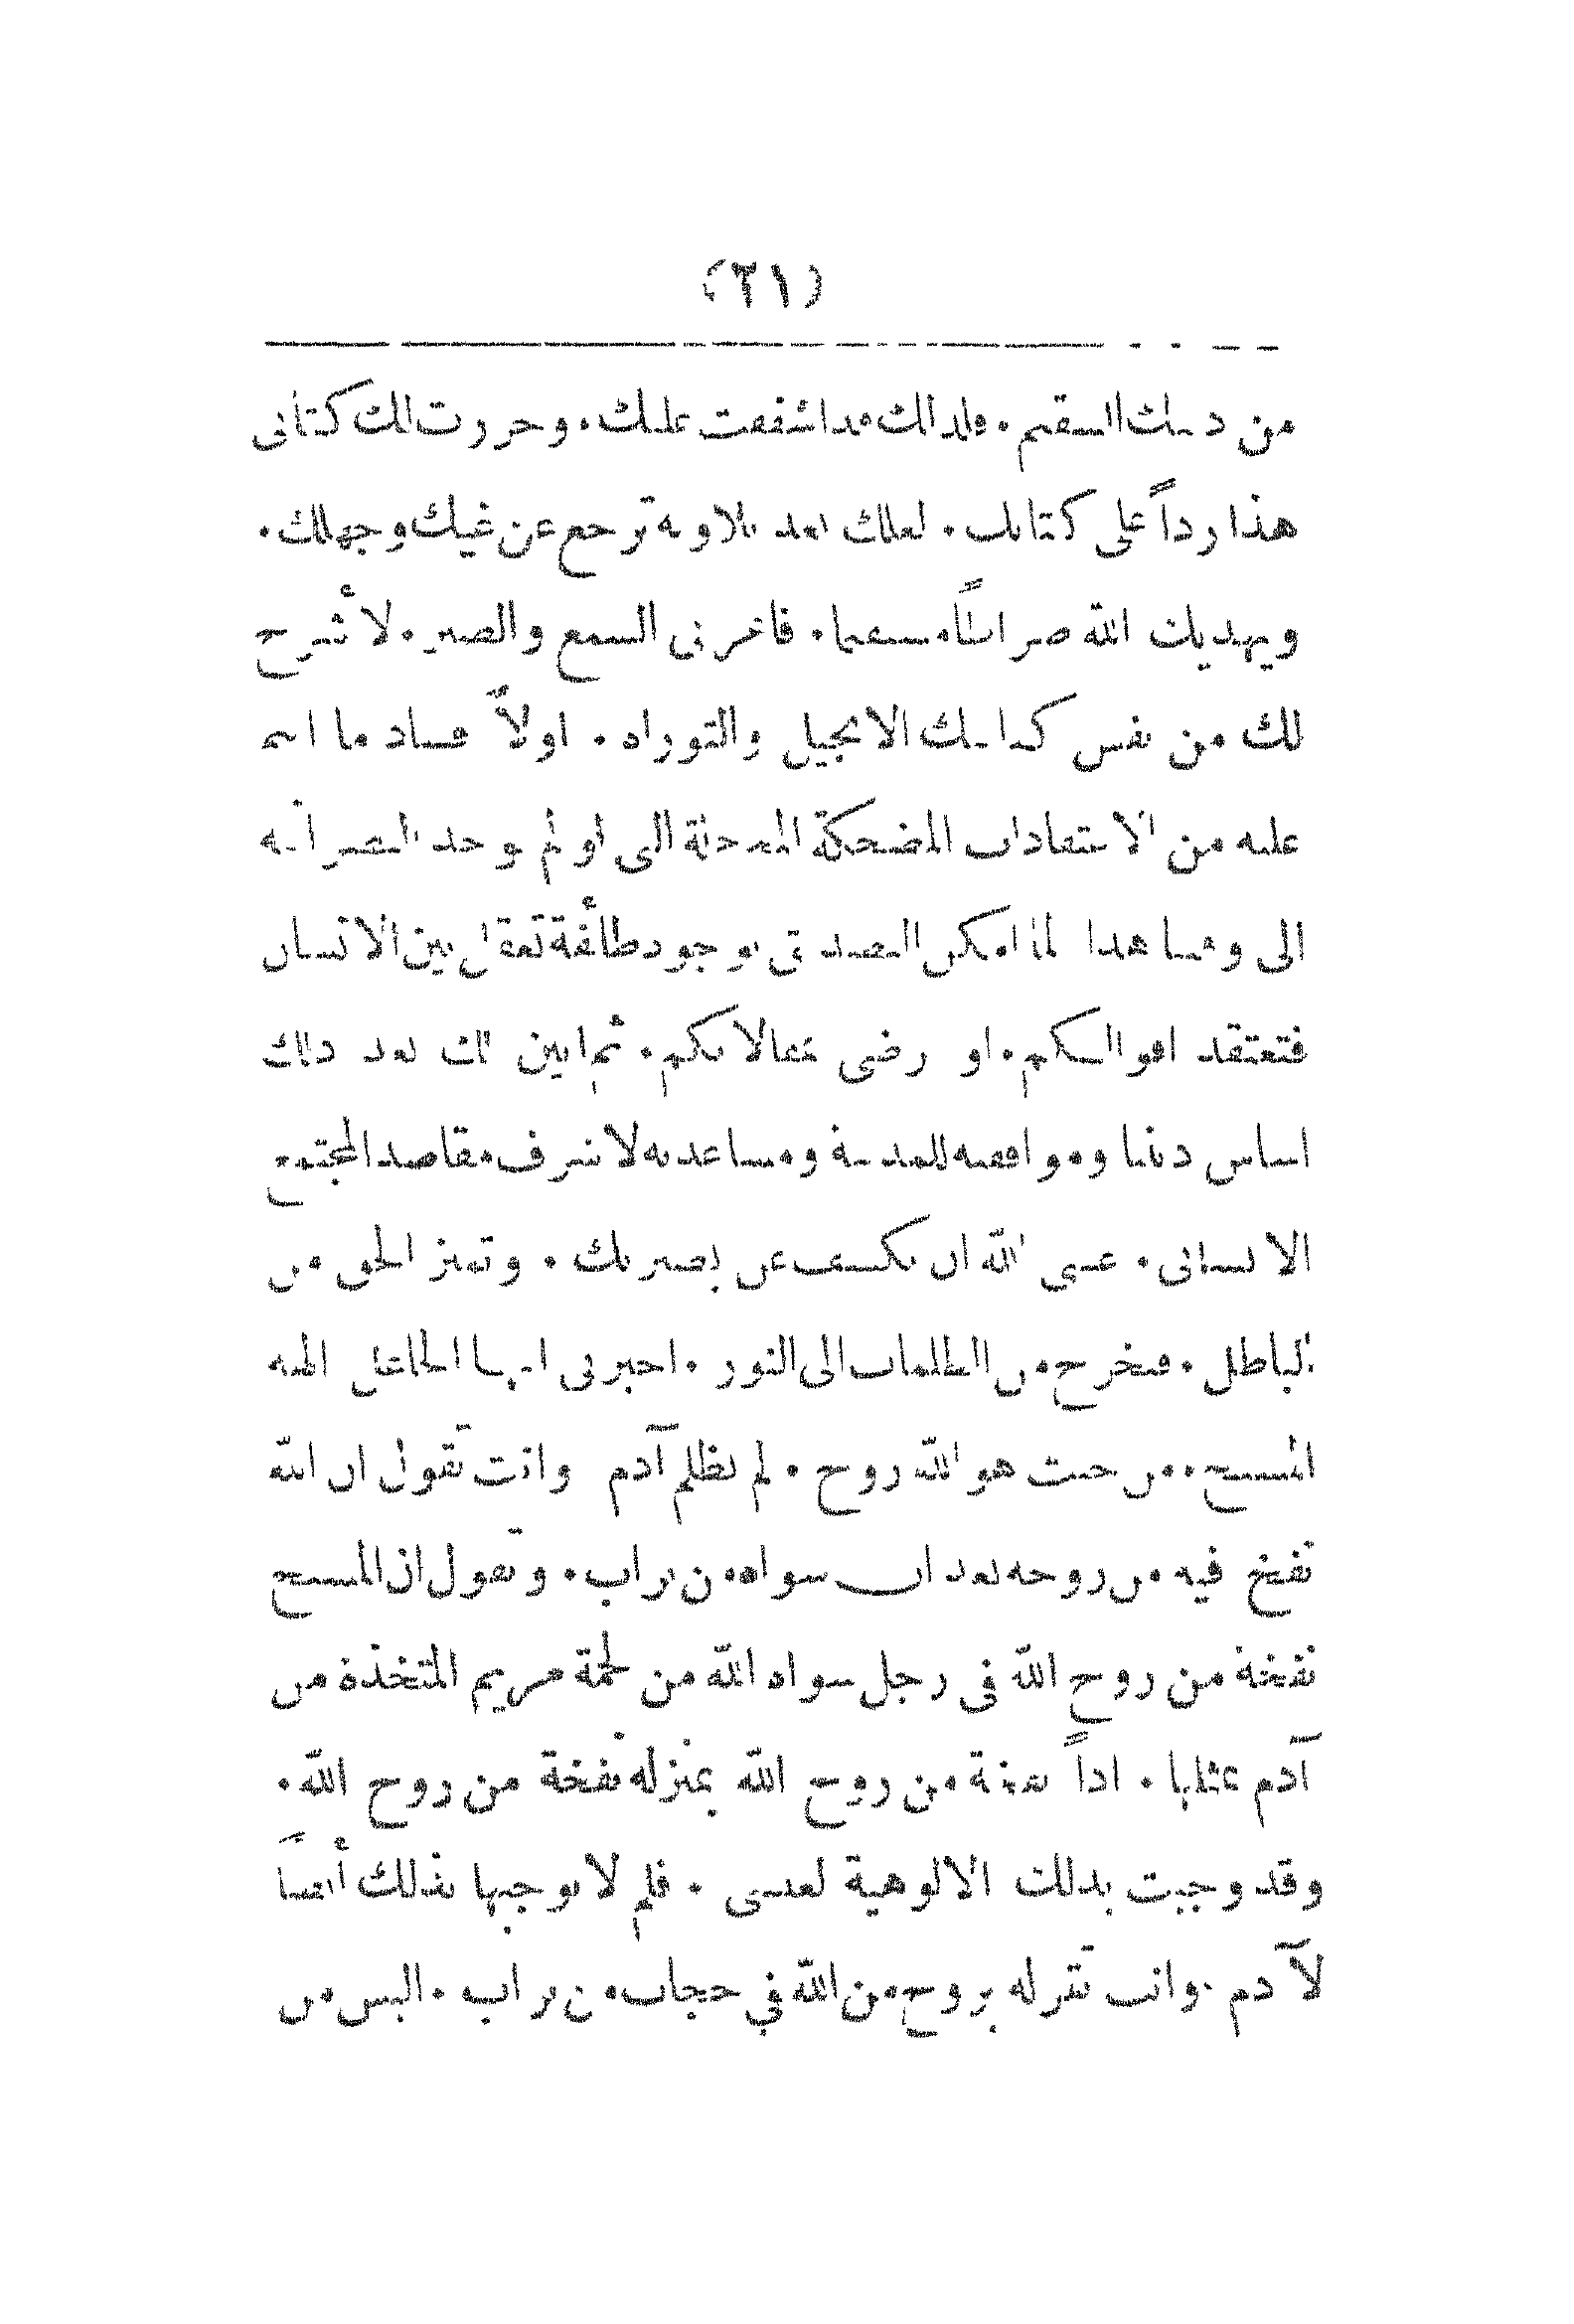 (٣١)
من دينك السقيم. فلذلك قد اشفقت عليك. وحررت لك كتابي
هذا رداً على كتابك. لعلك بعد تلاوته ترجع عن غيك وجهلك.
ويهديك الله صراطاً مستقيما. فاعرني السمع والصبر. لأشرح
لك من نفس كتابيك الانجيل والتوراة. اولاً فساد ما انتم
عليه من الاعتقادات المضحكة المحدثة التي لو لم توجد النصرانية
الى وقتنا هذا لما امكن التصديق بوجود طائفة تعقل بين الانسان
فتعتقد اقوالكم. او رضى مقالاتكم. ثم ابين لك بعد ذلك
اساس ديننا وموافقته للمدنية ومساعدته لا شرف مقاصد المجتمع
الانساني. عسى الله ان يكشف عن بصيرتك. وتميز الحق من
الباطل. فتخرج من الظلمات الى النور. اخبرني ايها الجاعل الهية
المسيح. من حيث هو الله روح. لم تظلم آدم وانت تقول ان الله
نفخ فيه من روحه بعد ان سواه من تراب. وتقول ان المسيح
نفخة من روح الله في رجل سواه الله من لحمة مريم المتخذة من
آدم بمثلها. اذاً نفخة من روح الله بمنزلة نفخة من روح الله.
وقد وجبت بذلك الالوهية لعيسى. فلم لا توجبها بذلك أيضاً
لآدم. وانت تقر له بروح من الله في حجاب من تراب. اليس من